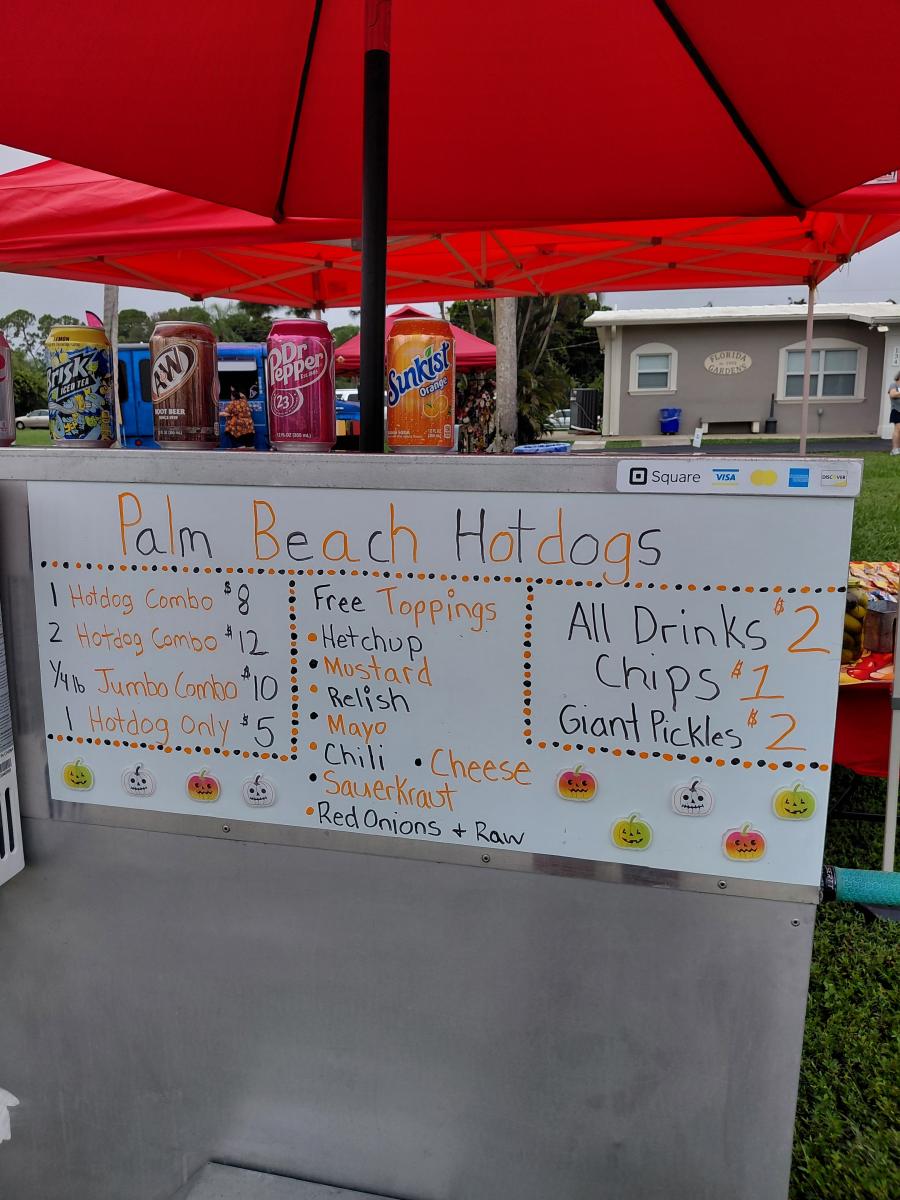 LEMON
Brisk
ICED TEA
A&W
ROOT BEER
SINCE 1919
Dr
Pepper
23
12 FL OZ (355 mL)
Sunkist
Orange
FLORIDA
GARDENS
Square
VISA
DISCOVER
Palm Beach Hotdogs
1 Hotdog Combo $8
2 Hotdog Combo $12
1/4 lb Jumbo Combo $10
1 Hotdog Only $5
Free Toppings
• Hetchup
• Mustard
• Relish
• Mayo
• Chili • Cheese
• Sauerkraut
• Red Onions + Raw
All Drinks $2
Chips $1
Giant Pickles $2